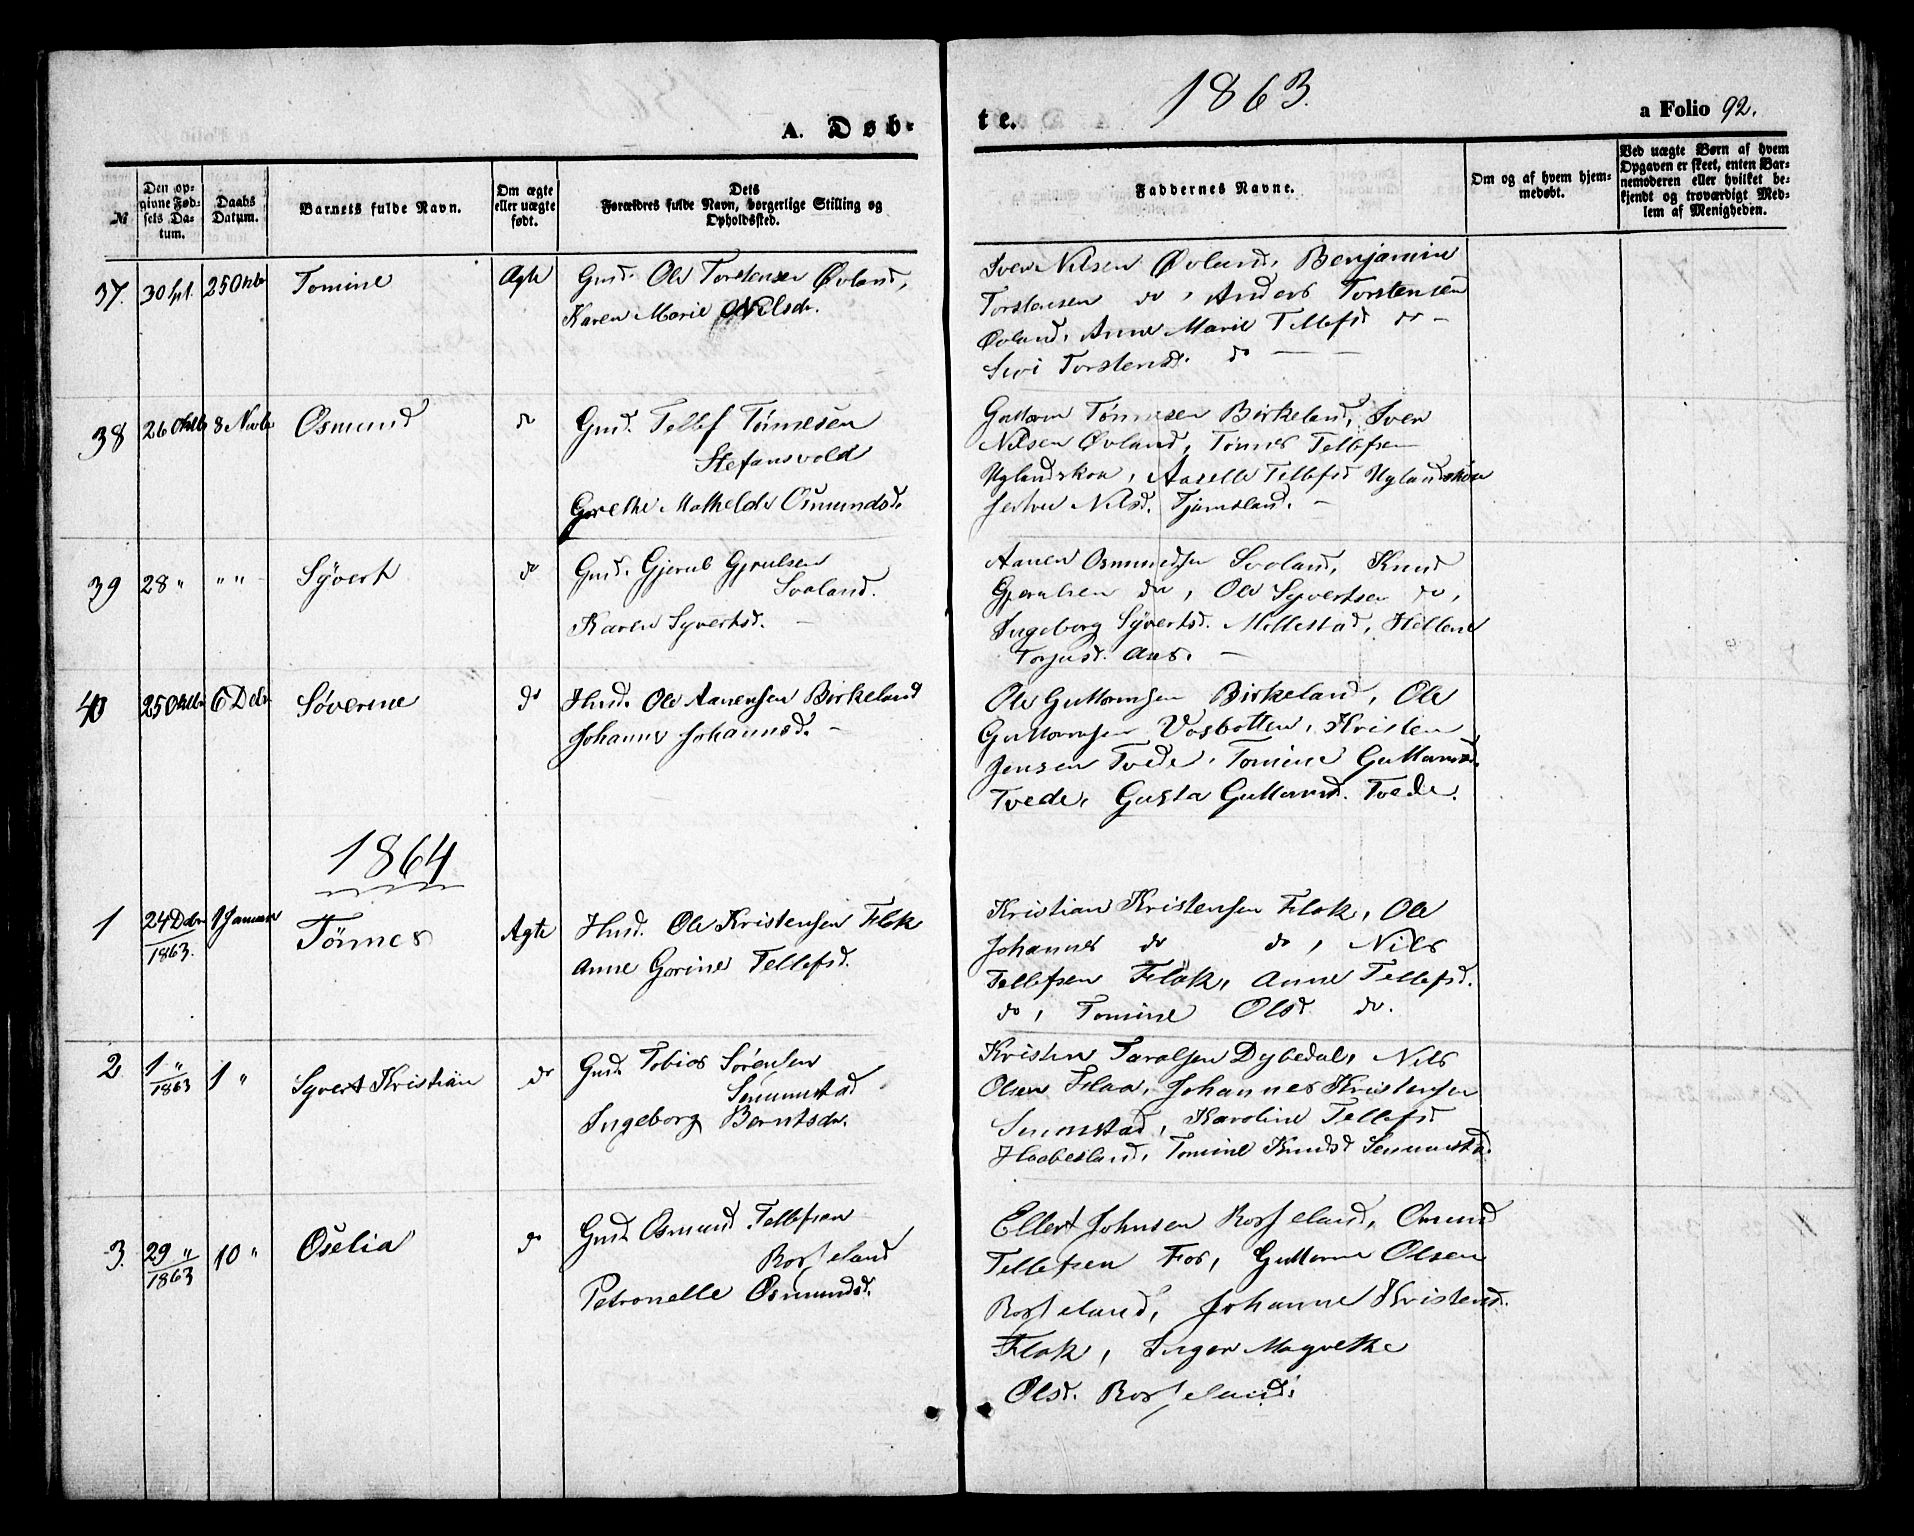 1863.
A. Døb-
te.
a Folio 92.
№
Den opgivne Fødsels Datum.
Daabs Datum.
Barnets fulde Navn.
Om ægte eller uægte født.
Dets
Forældres fulde Navn, borgerlige Stilling og
Opholdssted.
Faddernes Navne.
Om og af hvem hjemmedøbt.
Ved uægte Børn af hvem
Opgaven er skeet, enten Barnemoderen eller hvilket bekjendt og troværdigt Medlem af Menigheden.
37. 30 Spt. 25 Oktb Tomine Ægte Gmd. Ole Torstensen Øvland,
Karen Marie Nilsdr.
Sven Nilsen Øvland, Benjamin
Torstensen do, Anders Torstensen
Øvland, Anne Marie Tellefsd do -
Sivi Torstensd. do - -
38 26 Oktb 8 Novbr Osmund do Gmd. Tellef Tønnesen
Stefansvold
Grethe Mathilde Osmundsd.
Guttorm Tønnesen Birkeland, Sven
Nilsen Øvland, Tønnes Tellefsen
Uglandskoa, Aaselle Tellefsd Uglandskoa
Nilsd. Tjomsland. -
39 28 " " " Syvert do Gmd. Gjerul Gjerulsen
Svaland.
Karen Syvertsd. -
Aanen Osmundsen Svaland, Knud
Gjerulsen do, Ole Syvertsen do,
Ingeborg Syvertsd. Mellestad, Hellene
Torjusd. Aas. -
40 25 Oktbr 6 Debr Søverine do Husd. Ole Aanensen Birkeland
Johanne Johannsd. -
Ole Guttormsen Birkeland, Ole
Guttormsen Vasbotten, Kristen
Jensen Tvede, Tomine Guttormsd.
Tvede, Gusta Guttormsd. Tvede.
1864
1 24 Debr 1863. 1 Januar Tønnes Ægte Husd. Ole Kristensen Flak
Anne Gorine Tellefsd.
Kristian Kristensen Flak, Ole
Johannes do do, Nils
Tellefsen Flak, Anne Tellefsd.
do, Tomine Olsd do.
2. 1 " 1863 1 " Syvert Kristian do Gmd. Tobias Sørensen
Senumstad
Ingeborg Berntsdr.
Kristen Taralsen Dybedal, Nils
Olsen Flaa, Johannes Kristensen
Senumstad, Karoline Tellefsd
Haabesland, Tomine Knudsd Senumstad.
3. 29 " 1863 10 " Oselia do Gmd. Osmund Tellefsen
Rosseland
Petronelle Osmundsd.
Ellert Johnsen Rosseland, Omund
Tellefsen Fos, Guttorm Olsen
Rosseland, Johanne Kristensd.
Flak, Inger Magrethe
Olsd. Rosseland.